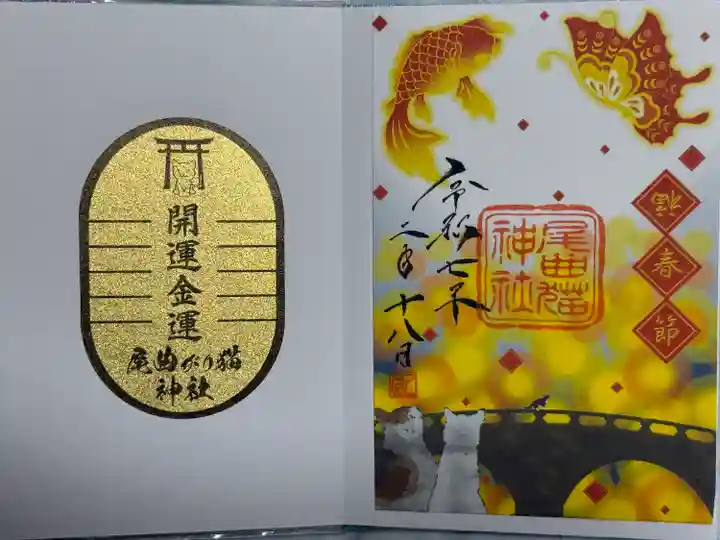 開運金運
尾曲がり猫
神社
令和七年
二月十八日
尾曲猫
神社
春
節